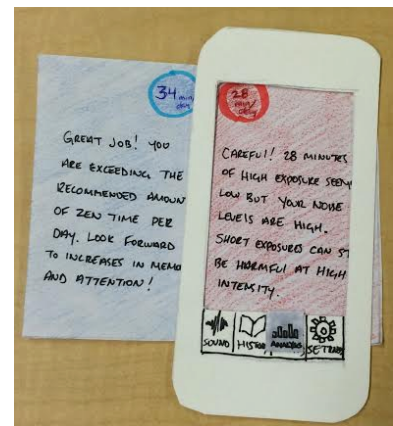 34 min/
day
GREAT JOB! YOU
ARE EXCEEDING THE
RECOMMENDED AMOUN
OF ZEN TIME PER
DAY. LOOK FORWARD
TO INCREASES IN MEMO
AND ATTENTION!
28
min/
day
CAREFUL! 28 MINUTES
OF HIGH EXPOSURE SEEM
LOW BUT YOUR NOISE
LEVELS ARE HIGH.
SHORT EXPOSURES CAN ST
BE HARMFUL AT HIGH
INTENSITY.
SOUND HISTORY ANALYSIS SETTINGS